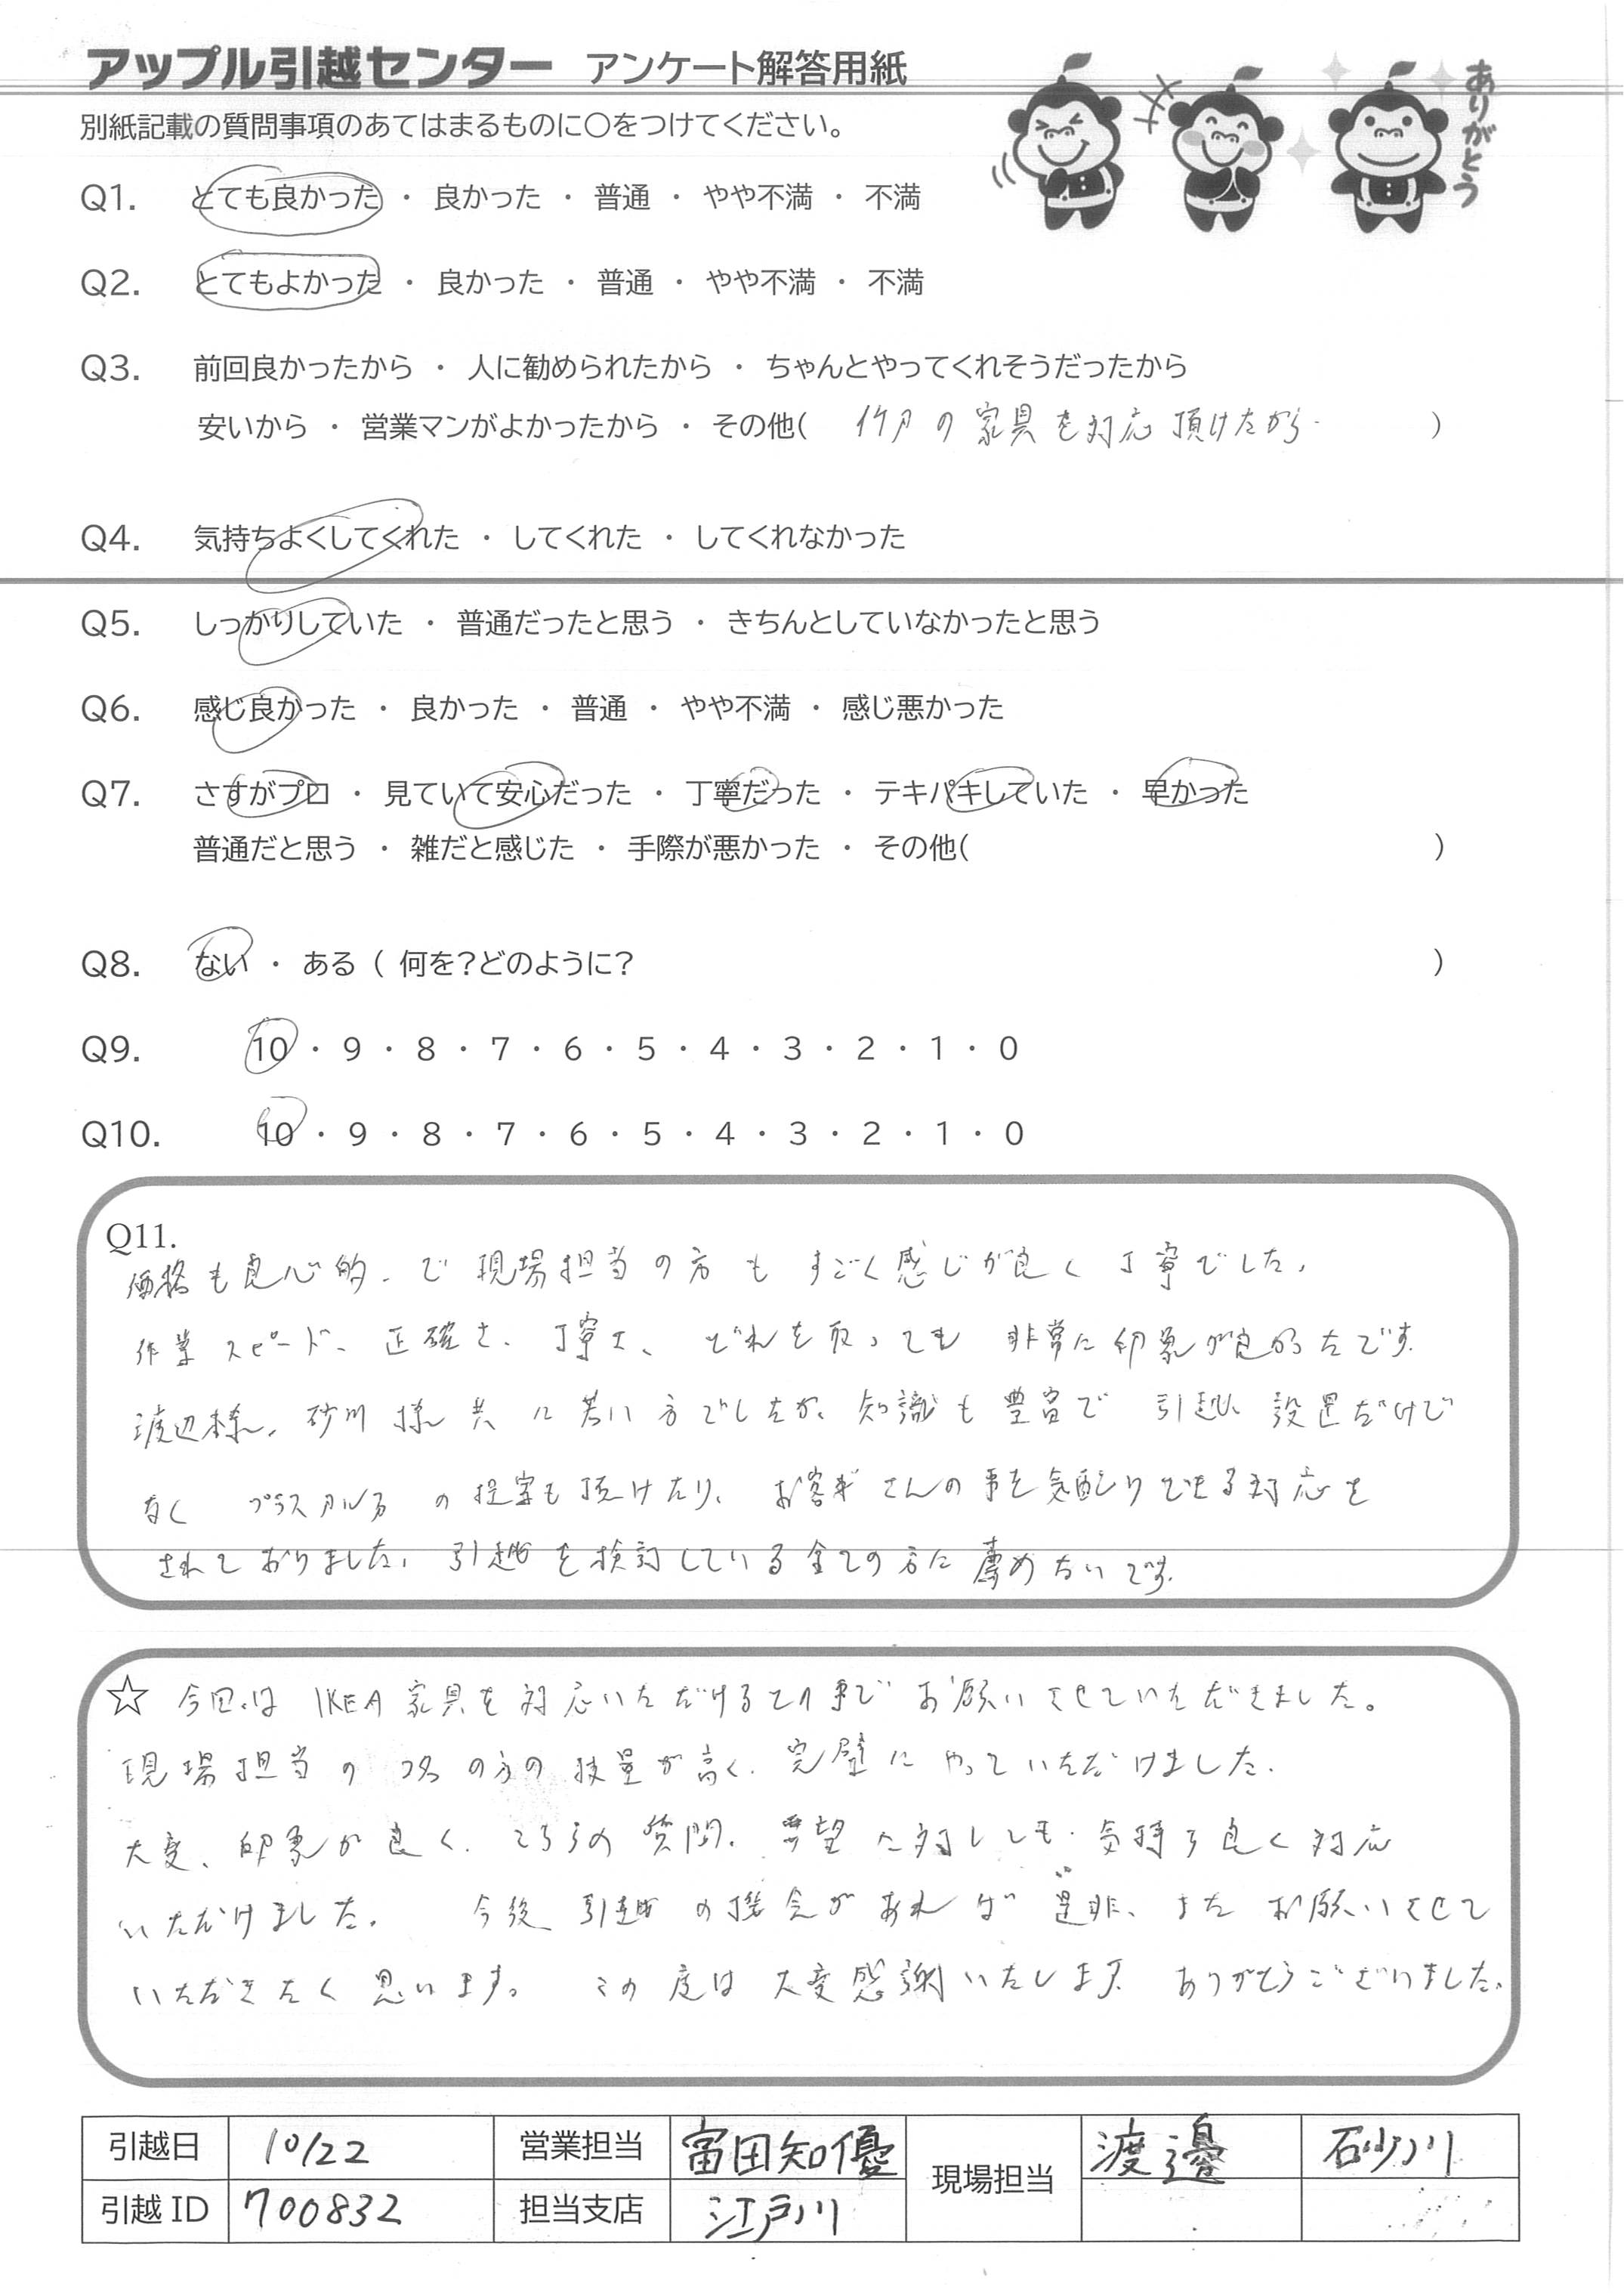 アップル引越センター アンケート解答用紙
ありがとう
別紙記載の質問事項のあてはまるものに〇をつけてください。
Q1. とても良かった ・ 良かった ・ 普通 ・ やや不満 ・ 不満
Q2. とてもよかった ・ 良かった ・ 普通 ・ やや不満 ・ 不満
Q3. 前回良かったから ・ 人に勧められたから ・ ちゃんとやってくれそうだったから
安いから ・ 営業マンがよかったから ・ その他( の家具を対応頂けたから. )
Q4. 気持ちよくしてくれた ・ してくれた ・ してくれなかった
Q5. しっかりしていた ・ 普通だったと思う ・ きちんとしていなかったと思う
Q6. 感じ良かった ・ 良かった ・ 普通 ・ やや不満 ・ 感じ悪かった
Q7. さすがプロ ・ 見ていて安心だった ・ 丁寧だった ・ テキパキしていた ・ 早かった
普通だと思う ・ 雑だと感じた ・ 手際が悪かった ・ その他( )
Q8. ない ・ ある ( 何を?どのように? )
Q9. 10 ・ 9 ・ 8 ・ 7 ・ 6 ・ 5 ・ 4 ・ 3 ・ 2 ・ 1 ・ 0
Q10. 10 ・ 9 ・ 8 ・ 7 ・ 6 ・ 5 ・ 4 ・ 3 ・ 2 ・ 1 ・ 0
Q11.
価格も良心的、で現場担当の方もすごく感じが良く丁寧でした。
作業スピード、正確さ、丁寧さ、どれを取っても非常に印象が良かったです。
渡辺様、砂川様共に若い方でしたが、知識も豊富で引越し設置だけで
なくプラスアルファの提案も頂けたり、お客さんの事を気配りできる対応を
されておりました。引越を検討している全ての方に薦めたいです。
☆ 今回は IKEA家具を対応いただけるとの事でお願いさせていただきました。
現場担当の2名の方の技量が高く、完璧にやっていただけました。
大変、印象が良く、こちらの質問、要望に対しても、気持ち良く対応
いただけました。 今後引越の機会があれば是非、またお願いさせて
いただきたく思います。 この度は大変感謝いたします。ありがとうございました。
引越日 10/22 営業担当 富田知優 現場担当 渡邊 砂川
引越ID 700832 担当支店 江戸川